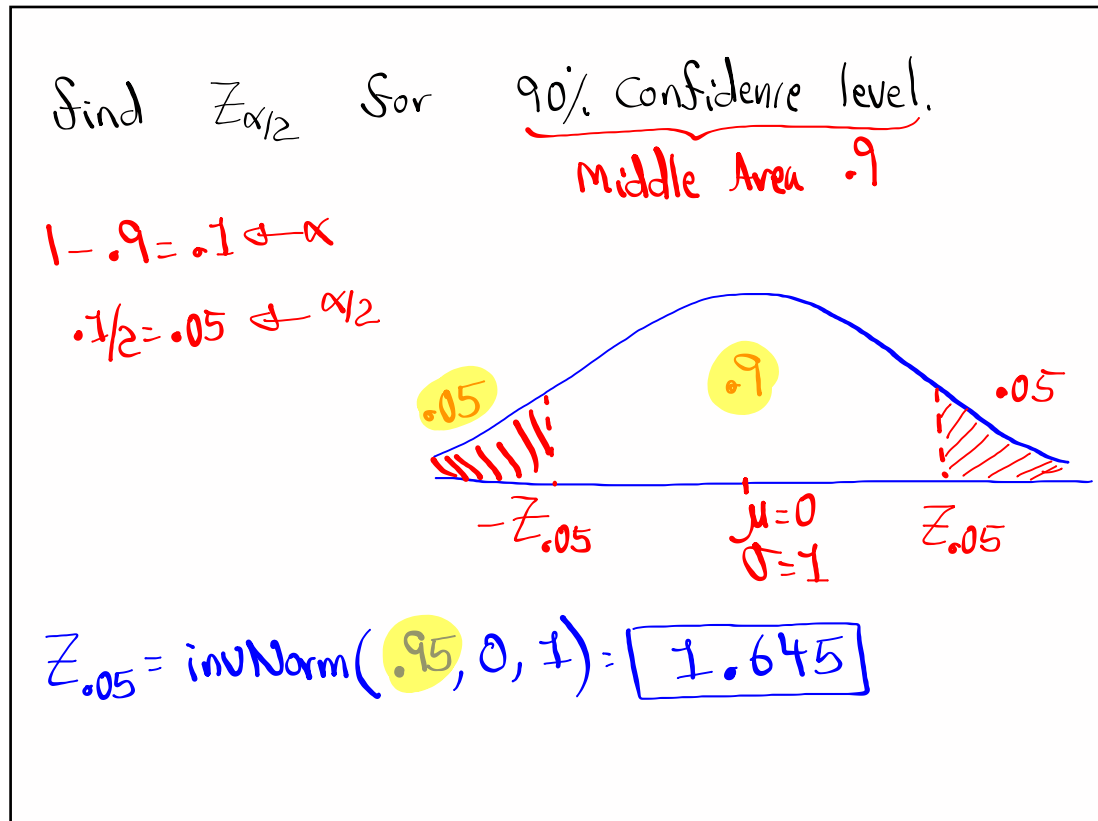 find Z α/2 for 90% Confidence level.
Middle Area .9
1 - .9 = .1 ← α
.1/2 = .05 ← α/2
.05 .9 .05
-Z.05 μ=0 Z.05
σ=1
Z.05 = invNorm(.95, 0, 1) = 1.645